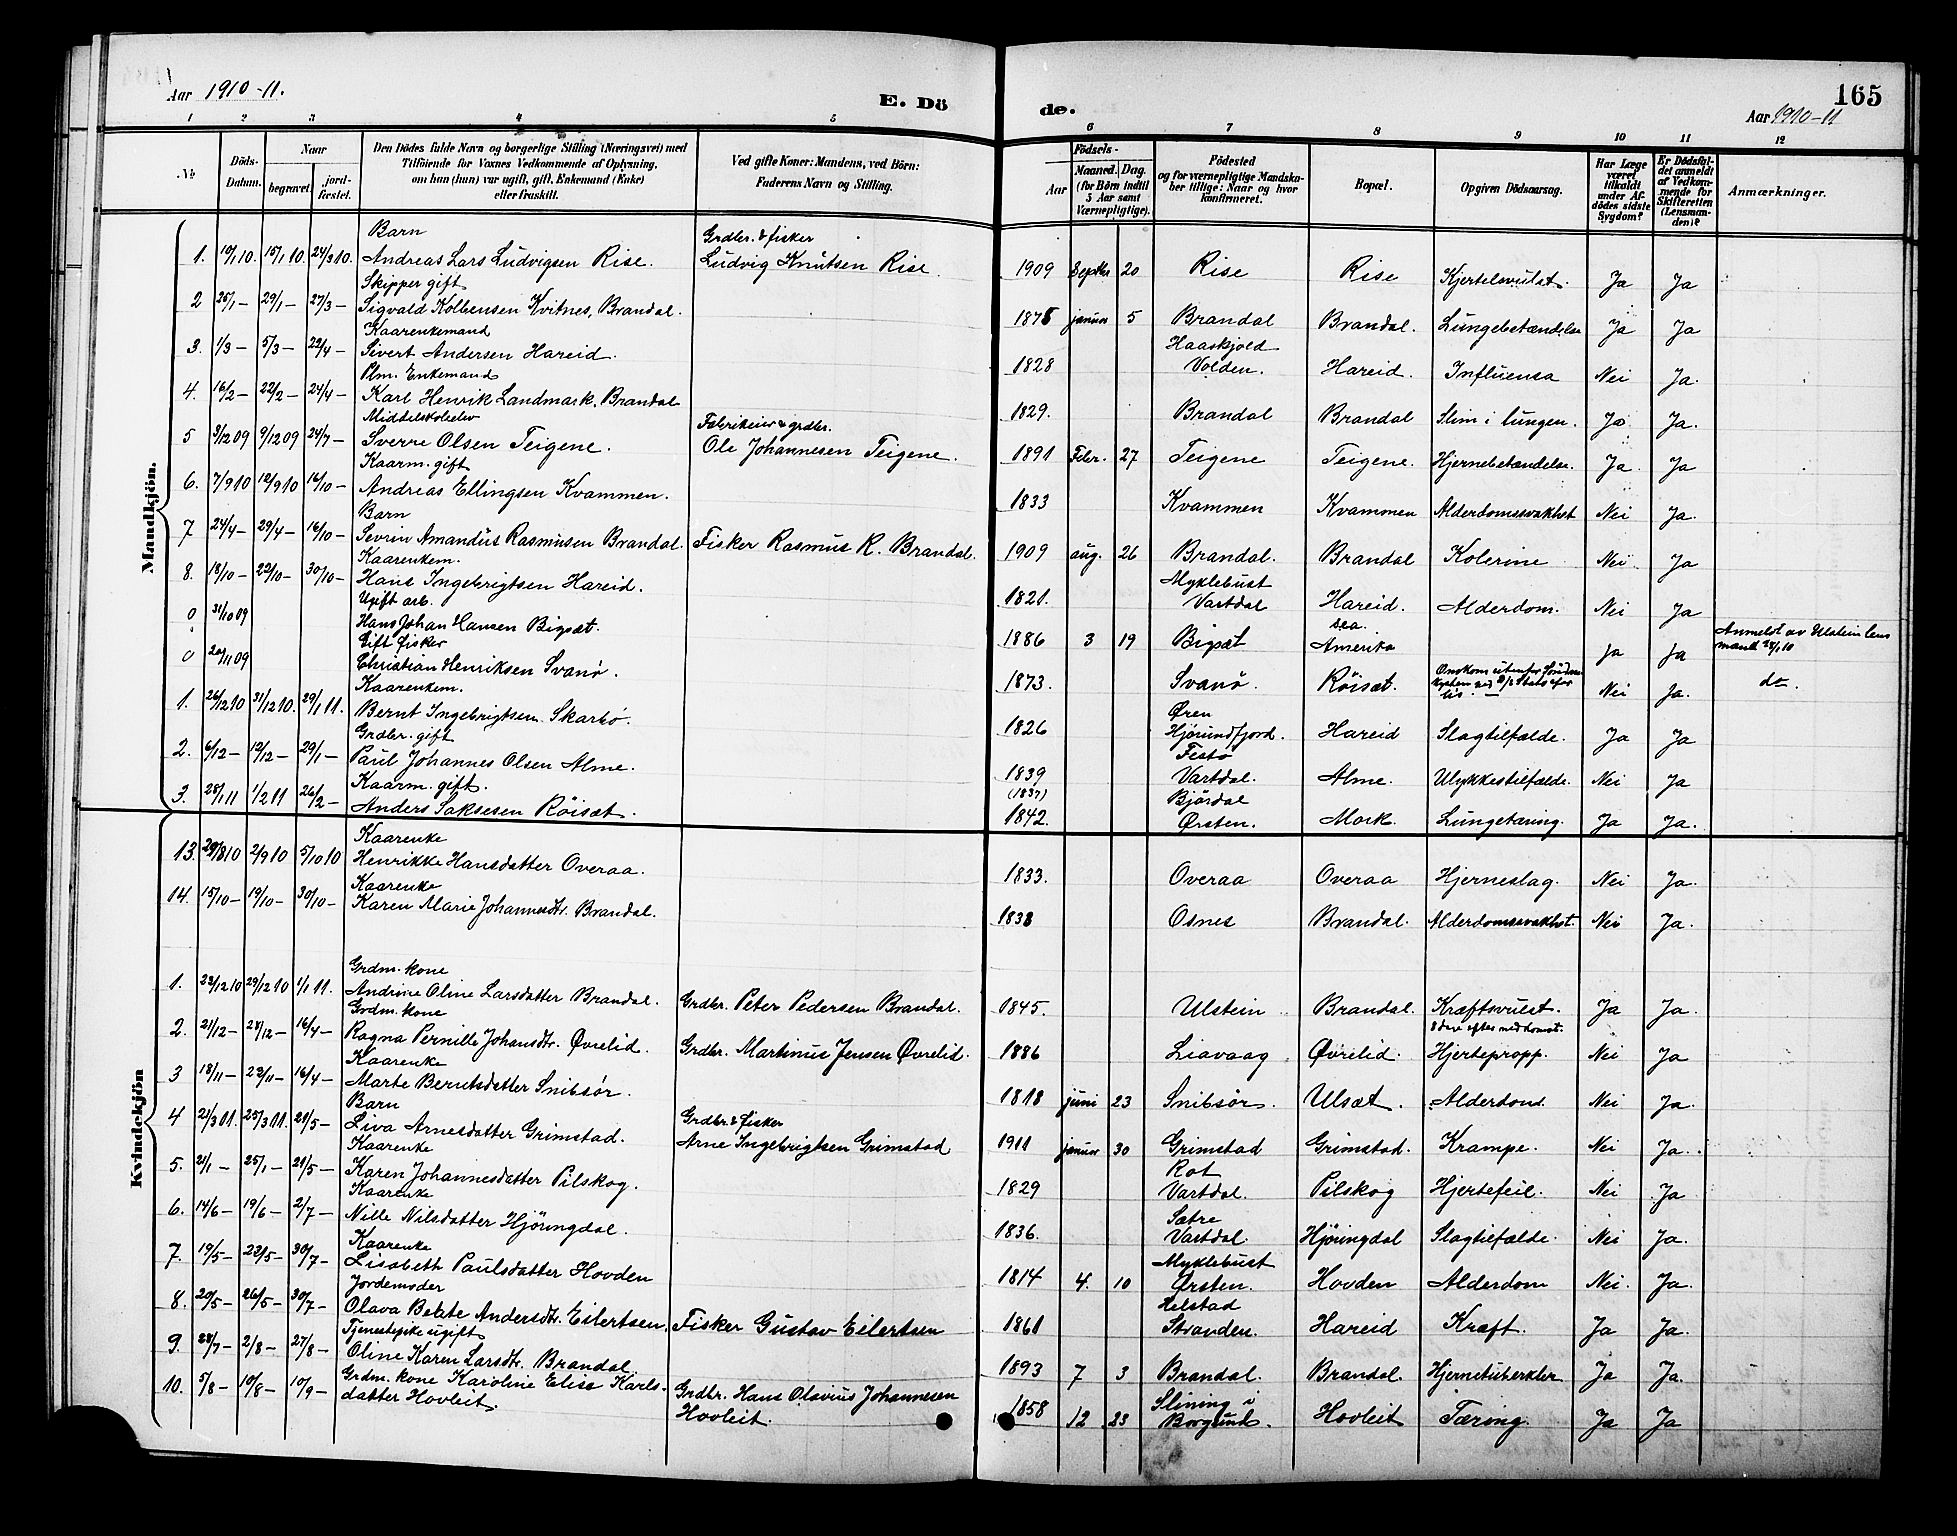 Aar 1910-11.
E. Dö
de.
165
Aar 1910-11
1 2 3 4 5 6 7 8 9 10 11 12
No
Döds-Datum.
Naar
begravet.
jord-fæstet.
Den Dödes fulde Navn og borgerlige Stilling (Næringsvei) med
Tilföiende for Voxnes Vedkommende af Oplysning,
om han (hun) var ugift, gift, Enkemand (Enke)
eller fraskilt.
Ved gifte Koner: Mandens, ved Börn:
Faderens Navn og Stilling.
Födsels-
Aar
Maaned. Dag.
(for Börn indtil
5 Aar samt
Værnepligtige).
Födested
og for værnepligtige Mandska-
ber tillige: Naar og hvor
konfirmeret.
Bopæl.
Opgiven Dödsaarsag.
Har Læge
været
tilkaldt
under Af-
dödes sidste
Sygdom?
Er Dödsfal-
det anmeldt
af Vedkom-
mende for
Skifteretten
(Lensman-
den)?
Anmærkninger.
Mandkjön.
Barn Grdbr. & fisker
1. 10/1 10. 15/1 10. 24/3 10. Andreas Lars Ludvigsen Rise. Ludvig Knutsen Rise. 1909 Septbr 20 Rise Rise Kjertelsvulst. Ja Ja
Skipper gift
2 25/1- 29/1- 27/3- Sigvald Kolbensen Kvitnes, Brandal. 1875 januar 5 Brandal Brandal. Lungebetændelse Ja Ja
Kaarenkemand Haaskjold
3. 1/3- 5/3- 22/4- Sivert Andersen Hareid. 1828 Volden. Hareid. Influensa Nei Ja.
Plm. Enkemand
4. 16/2- 22/2- 24/4- Karl Henrik Landmark, Brandal 1829. Brandal Brandal Slim i lungen. Ja Ja.
Middelskoleelev Fabrikeier & grdbr.
5 3/12 09 9/12 09 24/7- Sverre Olsen Teigene. Ole Johannesen Teigene. 1891 Febr. 27 Teigene Teigene. Hjernebetændelse. Ja. Ja
Kaarm. gift
6. 7/9 10 12/9 10 16/10- Andreas Ellingsen Kvammen. 1833 Kvammen Kvammen Alderdomssvakhet Nei Ja.
Barn
7 24/4- 29/4- 16/10- Sevrin Amandus Rasmusen Brandal. Fisker Rasmus R. Brandal. 1909 aug. 26 Brandal. Brandal Kolerine Nei. Ja
Kaarenkem. Myklebust
8. 18/10- 22/10- 30/10- Hans Ingebrigtsen Hareid. 1821. Vartdal Hareid. Alderdom. Nei Ja
Ugift arb.
0 31/10 09 Hans Johan Hansen Bigsæt. 1886 3 19 Bigsæt Amerika Ja Ja Anmeldt av Ulstein lens
mand 24/1 10
Gift fisker
0 20/11 09 Christian Henriksen Svanø. 1873. Svanø. Röisæt. Nei Ja. do.
Kaarenkem. Øren
1. 26/12 10 31/12 10. 29/1 11. Bernt Ingebrigtsen Skarbö. 1826 Hjörundfjord. Hareid Slagtilfælde. Ja Ja
Grdbr. gift Festö
2. 6/12- 12/12- 29/1- Paul Johannes Olsen Alme. 1839 Vartdal. Alme. Ulykkestilfælde. Nei Ja
(1837)
Kaarm. gift. Björdal
3. 28/1 11 1/2 11 26/2- Anders Saksesen Röisæt. 1842. Ørsten. Mork. Lungetæring. Ja Ja.
Kvindekjön
Kaarenke
13. 29/8 10 2/9 10 5/10 10 Henrikke Hansdatter Overaa. 1833. Overaa Overaa Hjerneslag. Nei Ja.
Kaarenke
14. 15/10- 19/10- 30/10- Karen Marie Johannesdtr. Brandal. 1838 Osnes Brandal. Alderdomssvakhet. Nei Ja.
Grdm. kone
1. 23/12 10 29/12 10 1/1 11. Andrine Oline Larsdatter Brandal. Grdbr. Peter Pedersen Brandal. 1845. Ulstein Brandal. Kræftsvulst. Ja Ja.
Grdm. kone 8 dage efter nedkomst.
2. 21/12- 28/12- 16/4- Ragna Pernille Johansdtr. Øvrelid. Grdbr. Martinus Jensen Øvrelid. 1886 Liavaag Øvrelid. Hjertepropp. Nei Ja
Kaarenke
3 18/11- 23/11- 16/4- Marte Berntsdatter Snibsör. 1818 juni 23 Snibsör. Ulsæt. Alderdom. Nei Ja.
Barn Grdbr. & fisker
4 21/3 11. 25/3 11. 21/5- Liva Arnesdatter Grimstad. Arne Ingebrigtsen Grimstad 1911 januar 30 Grimstad Grimstad. Krampe. Nei Ja.
Kaarenke Rot
5. 21/1- 25/1- 21/5- Karen Johannesdatter Pilskog. 1829 Vartdal. Pilskog Hjertefeil. Nei Ja
Kaarenke Sætre
6. 14/6- 19/6- 2/7- Nille Nilsdatter Hjöringdal. 1836. Vartdal. Hjöringdal Slagtilfælde. Nei Ja.
Kaarenke Myklebust
7. 19/5- 23/5- 30/7- Lisabeth Paulsdatter Hovden 1814 4. 10 Ørsten. Hovden Alderdom Nei. Ja.
Jordemoder Helstad
8. 20/5- 26/5- 30/7- Olava Beate Andersdtr. Eilertsen. Fisker Gustav Eilertsen 1861 Stranden. Hareid Kræft. Ja Ja.
Tjenestepike ugift
9. 28/7- 2/8- 27/8- Oline Karen Larsdtr. Brandal 1893 7 3 Brandal. Brandal. Hjernetuberkler Ja Ja.
10. 5/8- 10/8- 10/9- Grdm. kone Karoline Elise Karls- Grdbr. Hans Olavius Johannesen 1858 12 23 Slining i Hovleit Tæring. Ja Ja
datter Hovleit. Hovleit. Borgund.